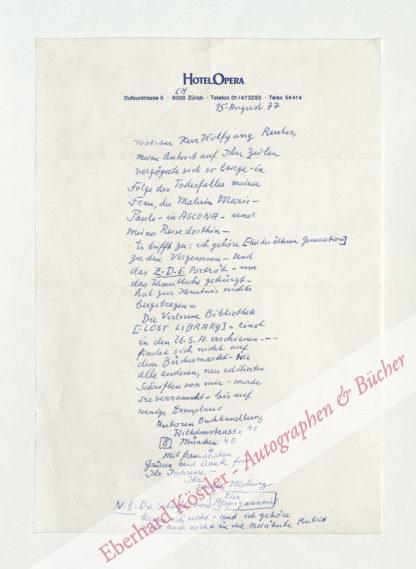 HOTEL OPERA
CH
Dufourstrasse 5 · 8008 Zürich · Telefon 01/473293 · Telex 54414
15. August 77
Herr Wolfgang Reuter,
meine Antwort auf Ihre Zeilen
verzögerte sich so lange – in
Folge des Todesfalles meiner
Frau, der Malerin Marie-
Paule – in ASCONA – und
meiner Reise dorthin –
Es trifft zu: ich gehöre [bei der älteren Generation]
zu den Vergessenen – und
das Z.D.F. Porträt – um
das Wesentliche gekürzt –
hat zur Kenntnis nichts
beigetragen =
Die Verlorene Bibliothek
[– LOST LIBRARY] – einst
in den U.S.A. erschienen – –
findet sich nicht auf
dem Büchermarkt – wie
alle anderen, neu edierten
Schriften von mir – wurde
sie verramscht – bis auf
wenige Exemplare =
Autoren Buchhandlung
Wilhelmstrasse 41
8 München 40
Mit freundlichen
Grüssen und Dank für
Ihr Interesse –
Ihr
Mehring
N.B. Die von Lisa Appignanesi
ich nicht – und ich gehöre
auch nicht in die erwähnte Rubrik
Eberhard Köstler - Autographen & Bücher